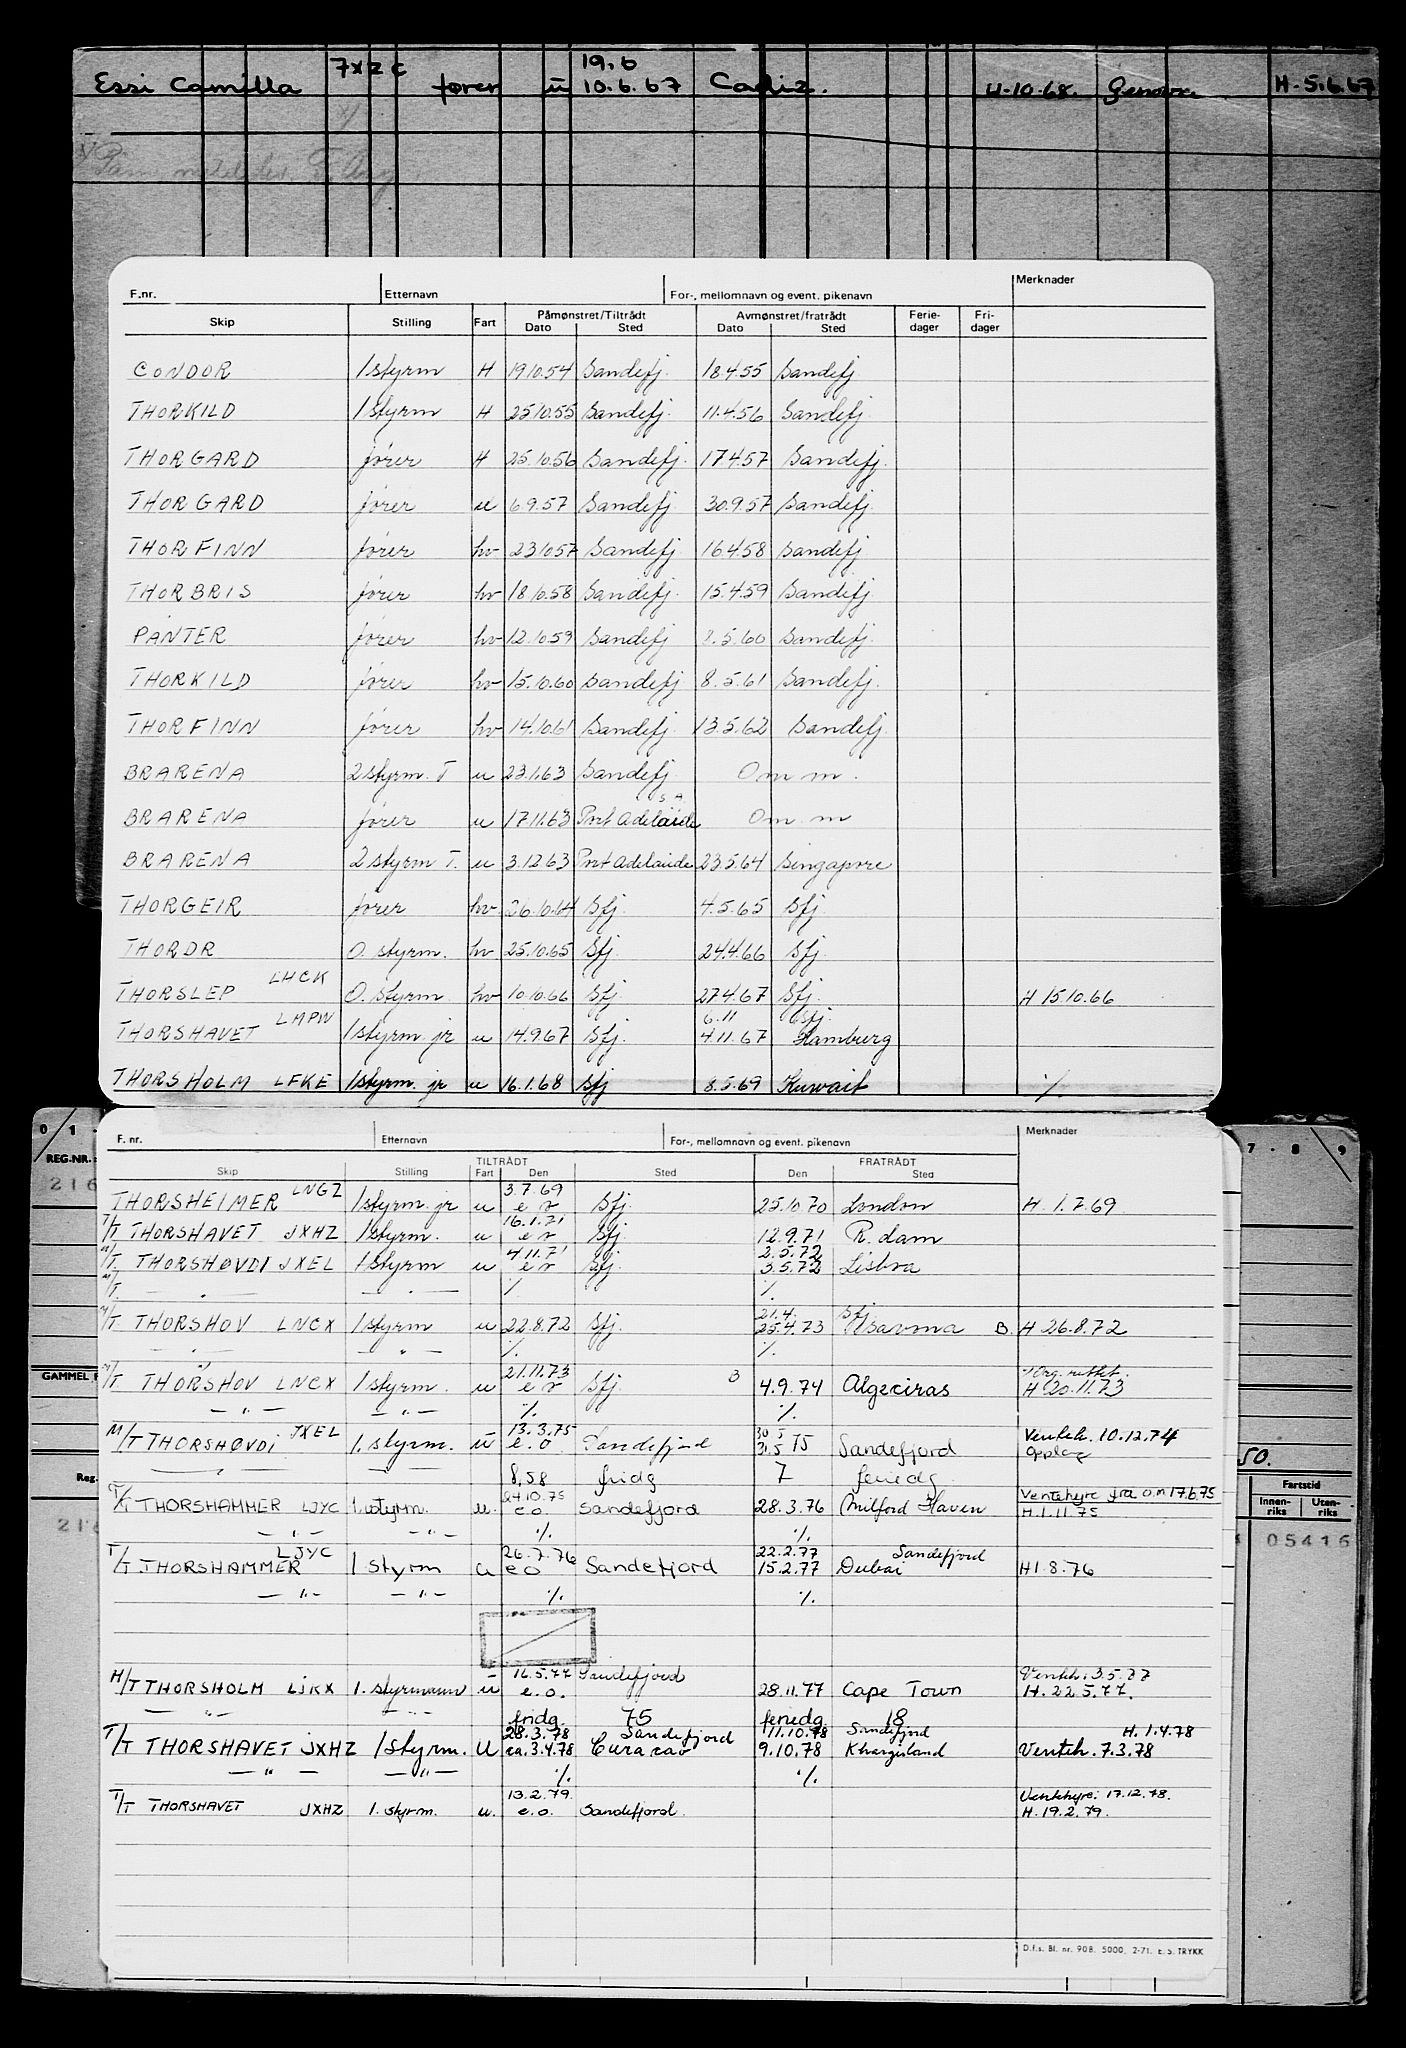 Essi Camilla 7XZC fører u 19.6 10.6.67 Cadiz. 4.10.68. Genova H. 5.6.67
F.nr. Etternavn For-, mellomnavn og event. pikenavn Merknader
Skip Stilling Fart Påmønstret/Tiltrådt Dato Sted Avmønstret/fratrådt Dato Sted Ferie-dager Fri-dager
CONDOR 1 styrm H 19.10.54 Sandefj. 18.4.55 Sandefj.
THORKILD 1 styrm H 25.10.55 Sandefj. 11.4.56 Sandefj.
THORGARD fører H 25.10.56 Sandefj. 17.4.57 Sandefj.
THORGARD fører u 6.9.57 Sandefj. 30.9.57 Sandefj.
THORFINN fører hv 23.10.57 Sandefj. 16.4.58 Sandefj
THORBRIS fører hv 18.10.58 Sandefj. 15.4.59 Sandefj
PANTER fører hv 12.10.59 Sandefj .5.60 Sandefj.
THORKILD fører hv 15.10.60 Sandefj 8.5.61 Sandefj.
THORFINN fører hv 14.10.61 Sandefj. 13.5.62 Sandefj
BRARENA 2 styrm. T u 23.1.63 Sandefj. Om m.
BRARENA fører u 17.11.63 Port Adelaide Om m
BRARENA 2 styrm T. u 3.12.63 Port Adelaide 23.5.64 Singapore
THORGEIR fører hv 26.10.64 Sfj. 4.5.65 Sfj.
THORDR O. styrm. hv 25.10.65 Sfj. 24.4.66 Sfj.
THORSLEP LHCK O. styrm. hv 10.10.66 Sfj. 27.4.67 Sfj. H 15.10.66
THORSHAVET LMPW 1 styrm. jr u 14.9.67 Sfj. 6.11 Sfj. 4.11.67 Hamburg
THORSHOLM LFKE 1 styrm. jr u 16.1.68 Sfj 8.5.69 Kuwait ./.
0 1 7 - 8 9
REG.NR.:
216
F. nr. Etternavn For-, mellomnavn og event. pikenavn Merknader
Skip Stilling TILTRÅDT Fart Den Sted FRATRÅDT Den Sted
THORSHEIMER LNGZ 1 styrm jr u 3.7.69 e r Sfj. 25.10.70 London H. 1.7.69
T/T THORSHAVET JXHZ 1 styrm. u 16.1.71 e r Sfj. 12.9.71 R.dam
M/T. THORSHØVDI JXEL 1 styrm u 4.11.71 e r Sfj. 2.5.72 3.5.72 Lisboa
M/T. — " — — " — ./. ./.
M/T THORSHOV LNCX 1 styrm u 22.8.72 Sfj. 21.4. Sfj 25.4.73 B. H 26.8.72
— " — — " — ./. ./.
M/T THORSHOV LNCX 1 styrm. u 21.11.73 e r Sfj. B 4.9.74 Algeciras H 20.11.73
— " — — " — ./. ./.
M/T THORSHØVDI JXEL 1. styrm. u 13.3.75 e.o. Sandefjord 30.5 31.5 75 Sandefjord Venteh. 10.12.74 Opplag
— " — — " — 8,58 fridg 7 feriedg
T/T THORSHAMMER LJYC 1. styrm. u. 24.10.75 e.o. Sandefjord 28.3.76 Milford Haven Ventehyre fra o.m 17.6.75 H.1.11.75
— " — — " — ./. ./.
T/T THORSHAMMER LJYC 1 styrm u 26.7.76 e o Sandefjord 22.2.77 Sandefjord 15.2.77 Dubai H 1.8.76
— " — — " — ./. ./.
M/T THORSHOLM LJKX 1. styrmann u 16.5.77 e.o. Sandefjord 28.11.77 Cape Town Venteh. 3.5.77 H. 22.5.77.
— " — — " — fridg. 75 feriedg 18
T/T THORSHAVET JXHZ 1 styrm. u 28.3.78 Sandefjord ca. 3.4.78 Curacao 11.10.78 Sandefjord 9.10.78 Khargisland H. 1.4.78 Venteh. 7.3.78
— " — — " — ./. ./.
T/T THORSHAVET JXHZ 1. styrm. u. 13.2.79. e.o. Sandefjord. Ventehyre: 17.12.78. H. 19.2.79.
GAMMEL
Reg.
216
50.
Fartstid
Innen-riks Uten-riks
05416
D.f.s. Bl. nr. 908. 5000. 2-71. E.S. TRYKK